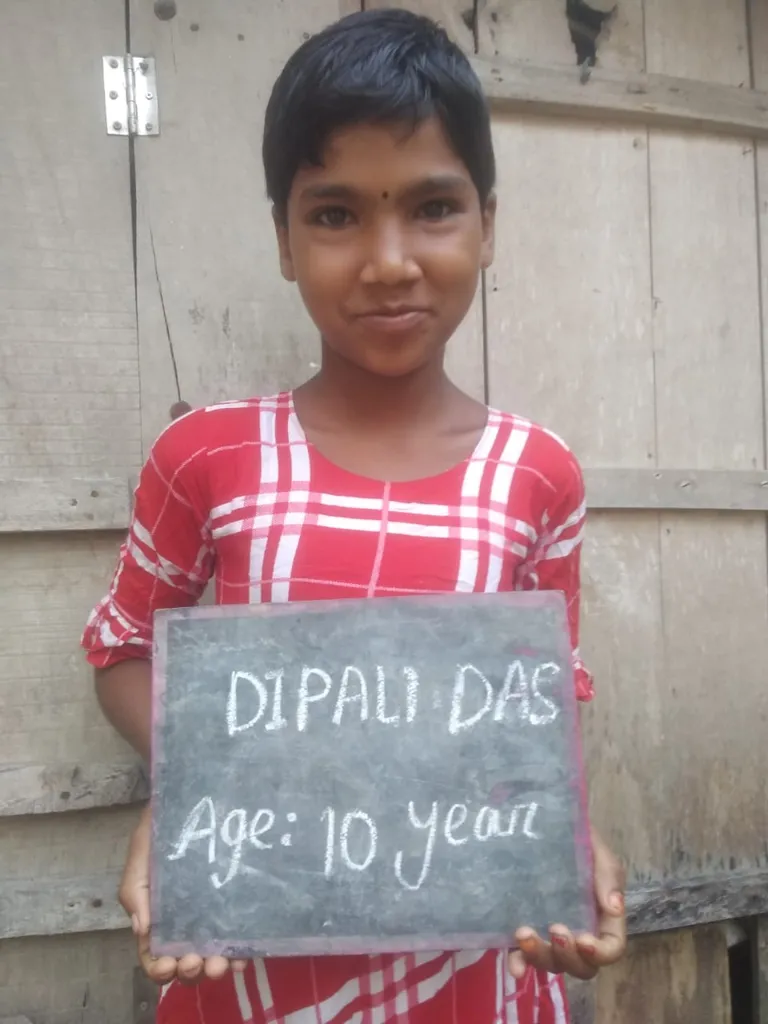 DIPALI DAS
Age: 10 year